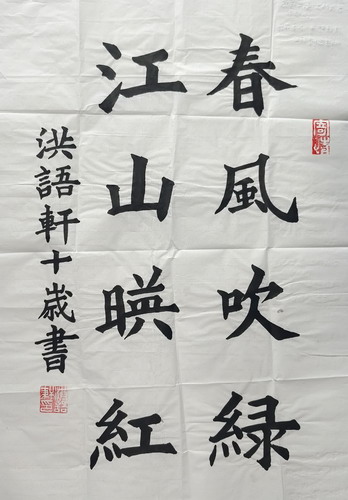 春風吹緑
江山暎紅
洪語軒十歲書